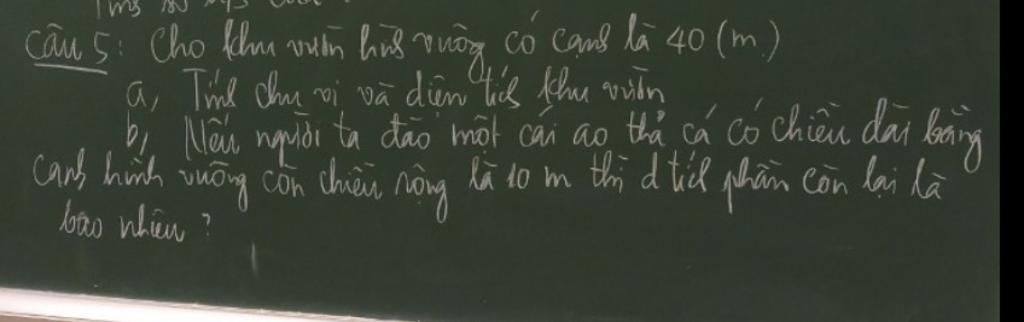 Câu 5: Cho khu vườn hình vuông có cạnh là 40 (m)
a, Tính chu vi và diện tích khu vườn
b, Nếu người ta đào một cái ao thả cá có chiều dài bằng
cạnh hình vuông còn chiều rộng là 10 m thì d tích phần còn lại là
bao nhiêu ?